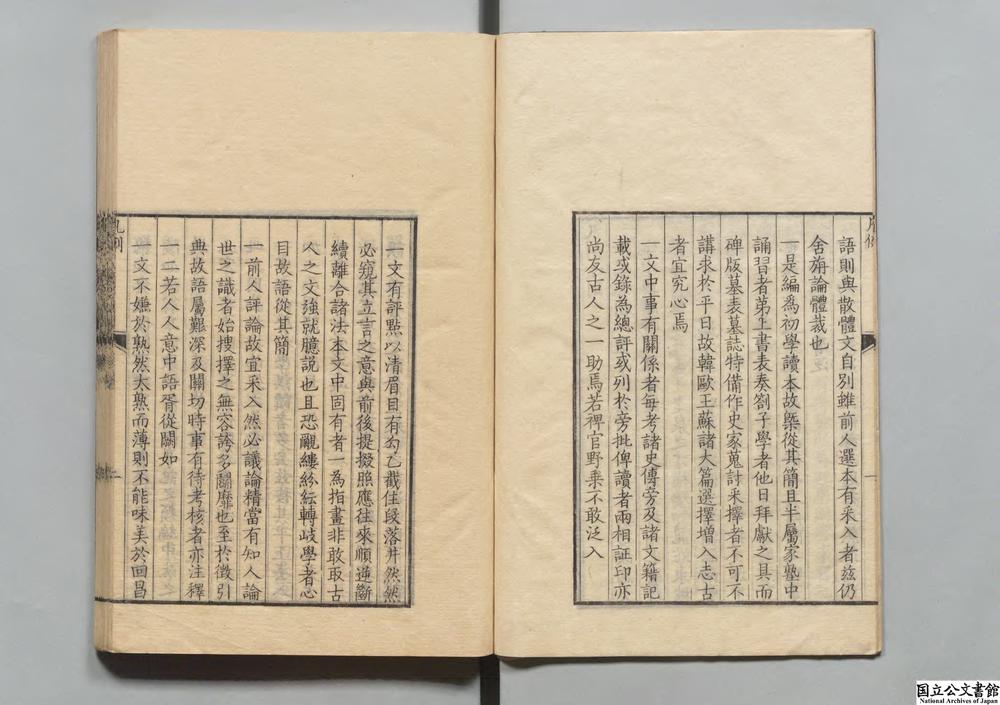 語則與散體文自別雖前人選本有采入者茲仍
舍旃論體裁也
一是編爲初學讀本故槩從其簡且半屬家塾中
誦習者弟上書表奏劄子學者他日拜獻之具而
碑版墓表墓誌特備作史家蒐討采擇者不可不
講求於平日故韓歐王蘇諸大篇選擇增入志古
者宜究心焉
一文中事有關係者每考諸史傳旁及諸文籍記
載或錄為總評或列於旁批俾讀者兩相証印亦
尚友古人之一助焉若稗官野乗不敢泛入
一文有評點以清眉目有勾乙截住段落井然然
必窺其立言之意與前後提掇照應往來順逆斷
續離合諸法本文中固有者一為指畫非敢取古
人之文強就臆説也且恐覼縷紛紜轉岐學者心
目故語從其簡
一前人評論故宜采入然必議論精當有知人論
世之識者始搜擇之無容誇多鬬靡也至於徵引
典故語屬艱深及關切時事有待考核者亦注釋
一二若人人意中語胥從闕如
一文不嫌於熟然太熟而薄則不能味美於回昌
凡例
国立公文書館
National Archives of Japan